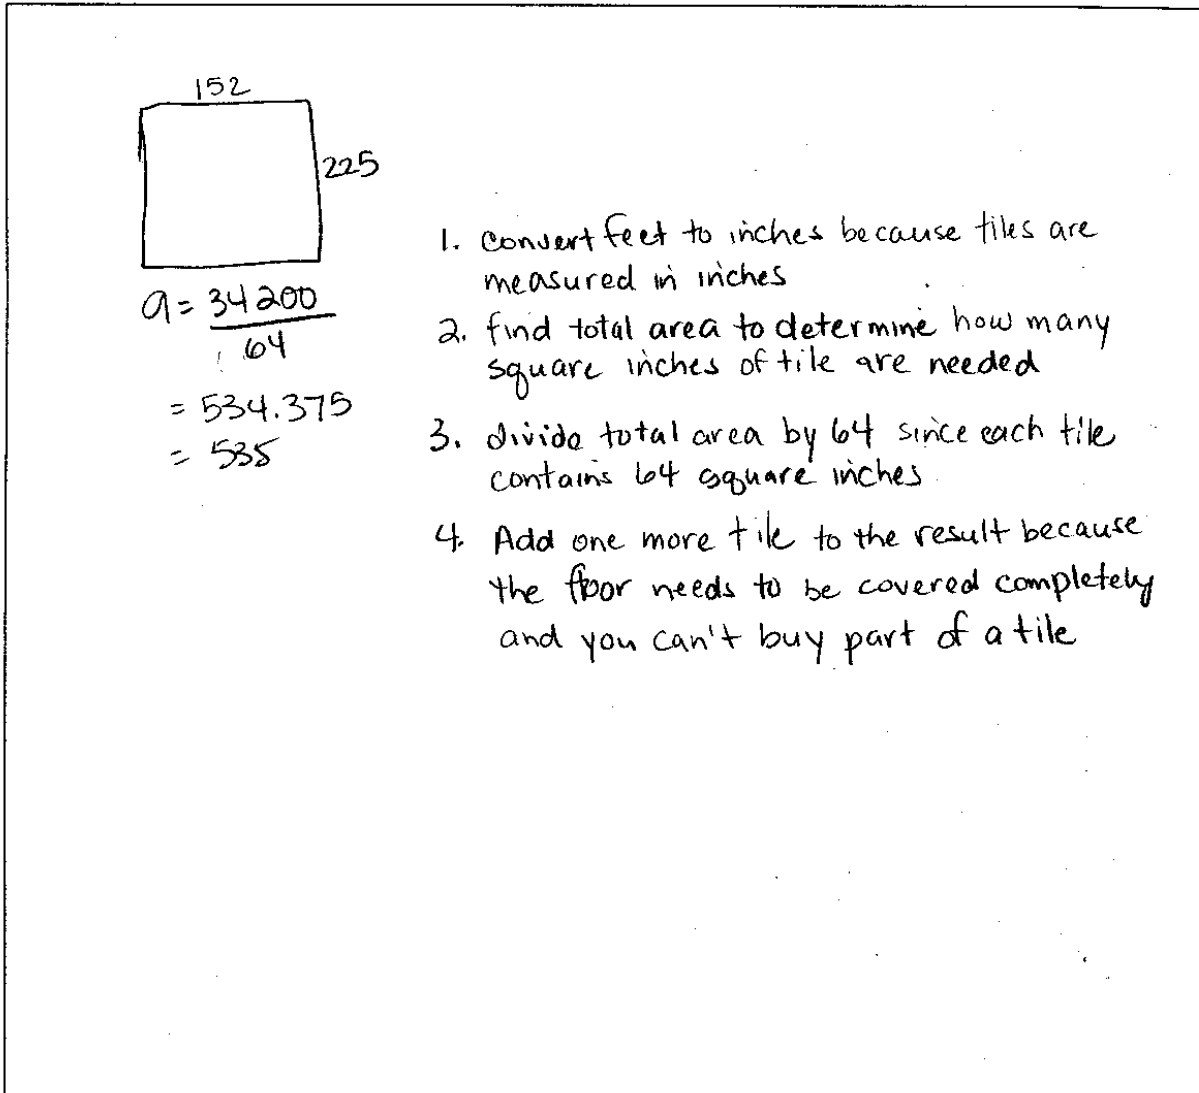 152
225
a = 34200
64
= 534.375
= 535
1. convert feet to inches because tiles are
measured in inches
2. find total area to determine how many
square inches of tile are needed
3. divide total area by 64 since each tile
contains 64 square inches
4. Add one more tile to the result because
the floor needs to be covered completely
and you can't buy part of a tile